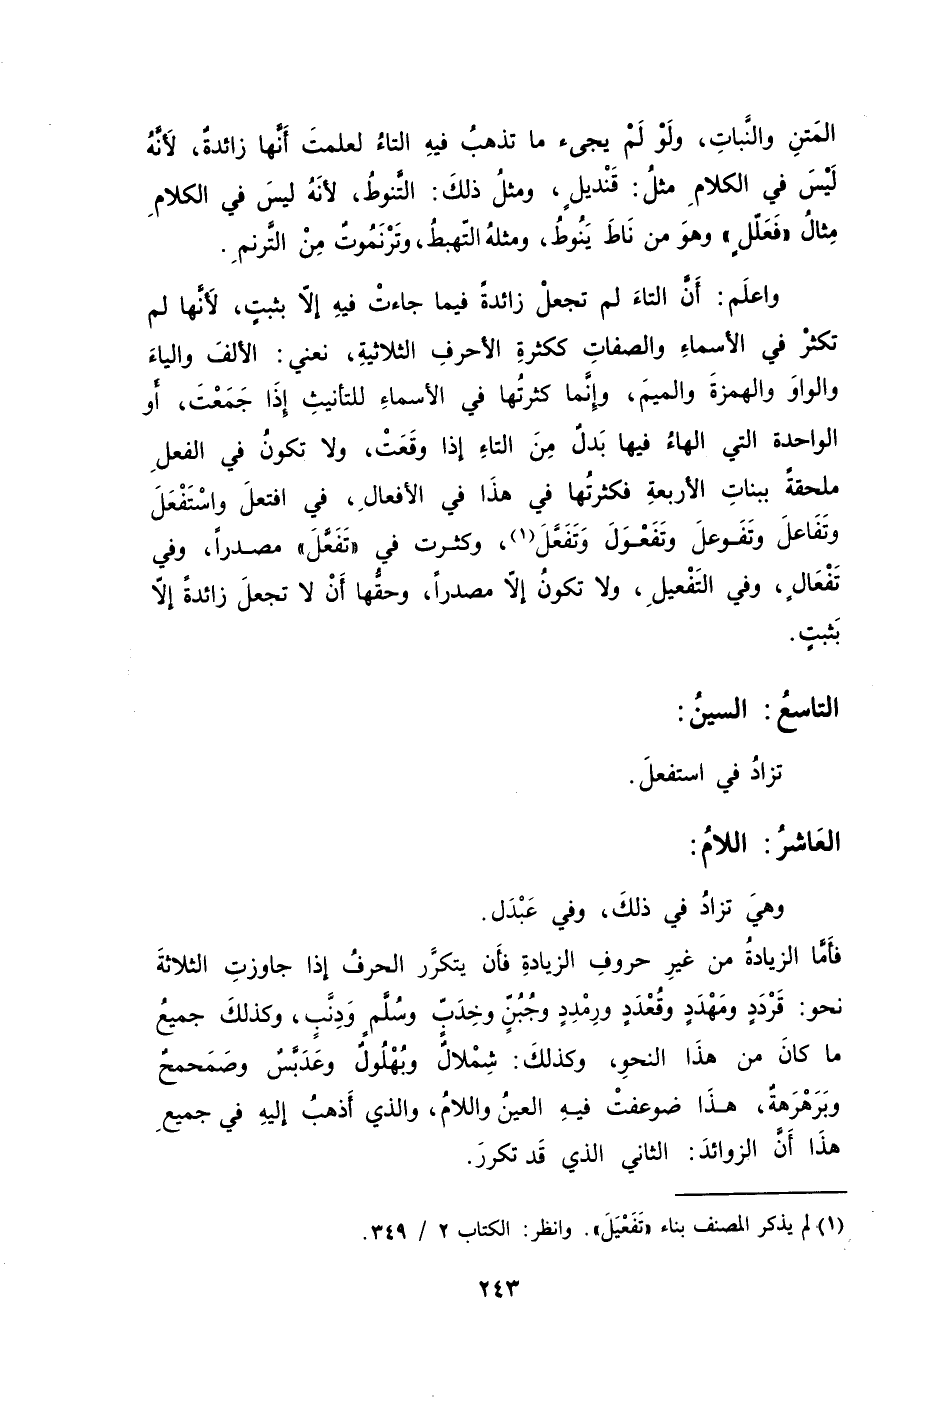 المَتنِ والنَّباتِ، ولَوْ لَمْ يجىء ما تذهبُ فيهِ التاءُ لعلمتَ أَنَّها زائدةٌ، لَأنَّهُ
لَيْسَ في الكلامِ مثلُ: قَنْديلٍ، ومثلُ ذلكَ: التَّنوطُ، لأنَهُ ليسَ في الكلامِ
مِثالُ «فَعَلّلٍ» وهوَ من نَاطَ يَنُوطُ، ومثلهُ التّهبطُ، وتَرْنَمُوتٌ مِنْ التَّرنمِ.
واعلَم: أَنَّ التاءَ لم تجعلْ زائدةً فيما جاءتْ فيهِ إلّا بثبتٍ، لَأنَّها لم
تكثرْ في الأسماءِ والصفاتِ ككثرةِ الأحرفِ الثلاثيةِ، نعني: الألفَ والياءَ
والواوَ والهمزةَ والميمَ، وإنَّما كثرتُها في الأسماءِ للتأنيثِ إذَا جَمَعْتَ، أَو
الواحدة التي الهاءُ فيها بَدلٌ مِنَ التاءِ إذا وقَعَتْ، ولا تكونُ في الفعلِ
ملحقةً ببناتِ الأربعةِ فكثرتُها في هذَا في الأفعالِ، في افتعلَ واسْتَفْعَلَ
وتَفَاعلَ وتَفَوعلَ وتَفَعْوَلَ وَتَفَعَّلَ(١)، وكثرت في «تَفَعَّلَ» مصدراً، وفي
تَفْعَالٍ، وفي التَفْعيلِ، ولا تكونُ إلّا مصدراً، وحقُّها أَنْ لا تجعلَ زائدةً إلّا
بَثبتٍ.
التاسعُ: السينُ:
تزادُ في استفعلَ.
العَاشرُ: اللامُ:
وهيَ تزادُ في ذلكَ، وفي عَبْدَل.
فأَمَّا الزيادةُ من غيرِ حروفِ الزيادةِ فأن يتكرَّر الحرفُ إذا جاوزتِ الثلاثةَ
نحو: قَرْدَدٍ ومَهْدَدٍ وقُعْدَدٍ ورِمْدِدٍ وجُبُنٍّ وخِدَبٍّ وسُلَّمٍ وَدِنَّبٍ، وكذلكَ جميعُ
ما كانَ من هذَا النحوِ، وكذلكَ: شِمْلالٌ وبُهْلُولٌ وعَدَبَّسٌ وصَمَحمحٌ
وبَرَهْرَهةٌ، هـذَا ضوعفتْ فيهِ العينُ واللامُ، والذي أَذهبُ إليهِ في جميعِ
هذَا أَنَّ الزوائدَ: الثاني الذي قَد تكررَ.
(١) لم يذكر المصنف بناء «تَفَعْيَلَ». وانظر: الكتاب ٢ / ٣٤٩.
٢٤٣